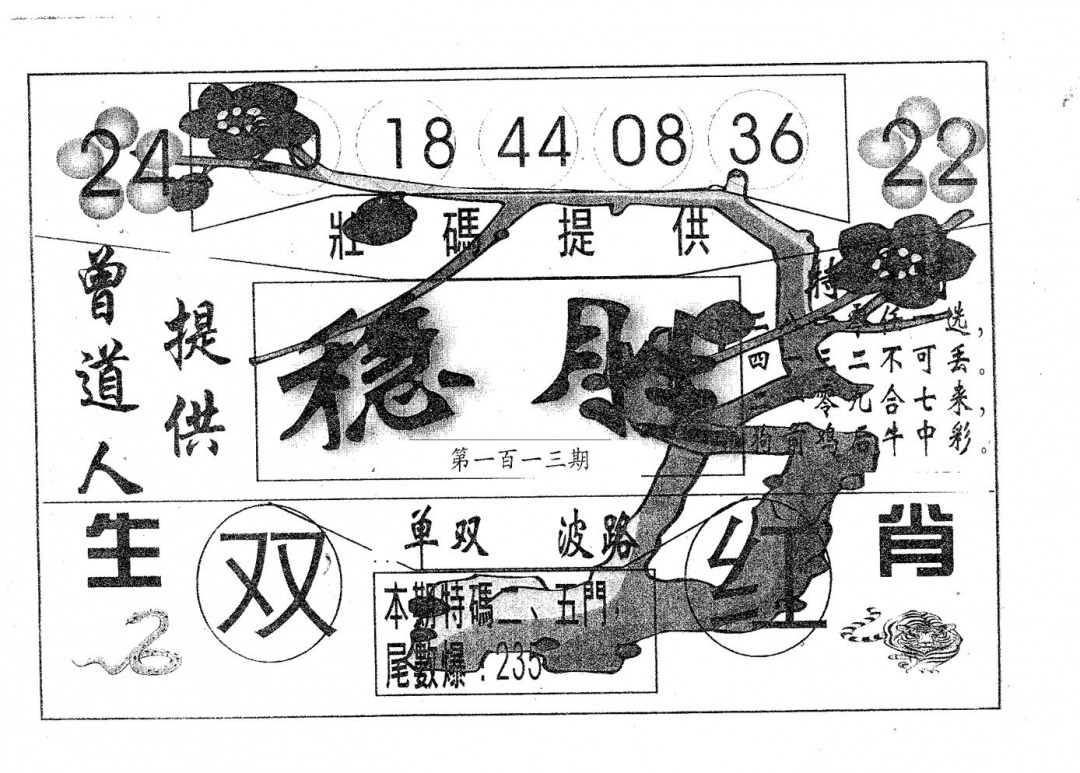 24
18 44 08 36
22
壯碼提供
曾道人
提供
稳胜
第一百一十三期
特
选，
四一三二不可丢。
零九合七来，
狗前鸡后牛中彩。
生
双
单双 波路
红
肖
本期特碼二、五門，
尾數爆：235